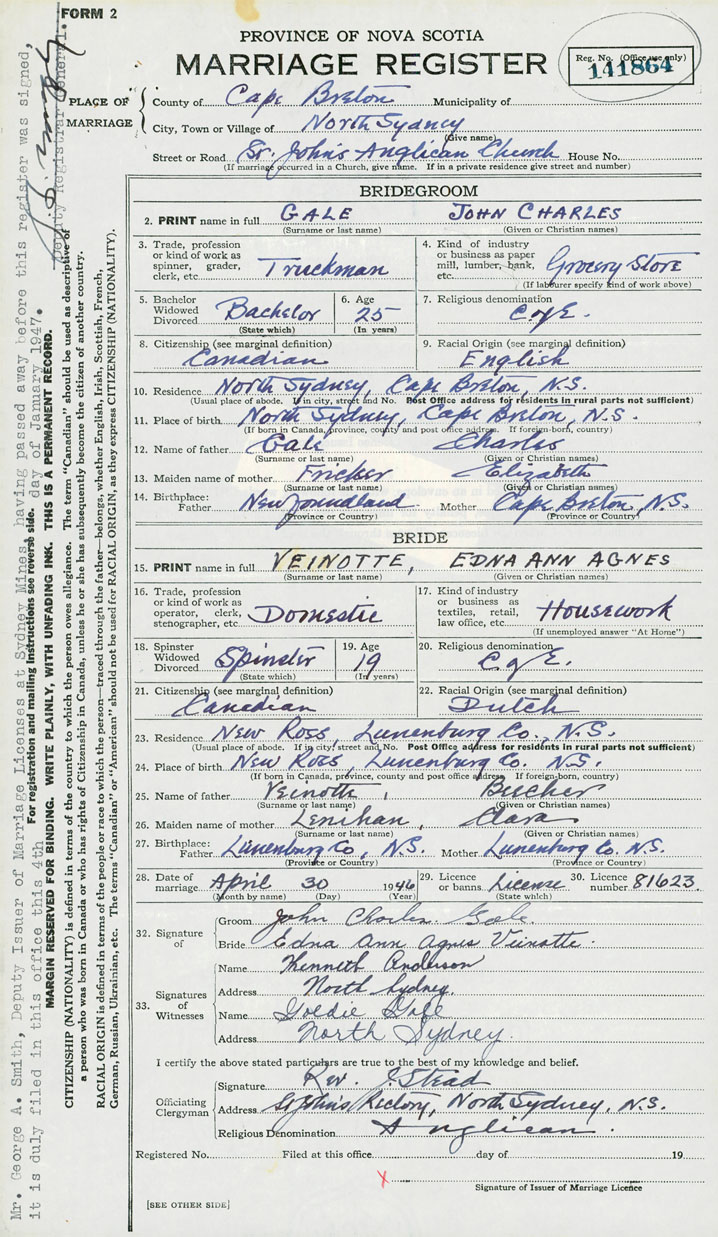 FORM 2
PROVINCE OF NOVA SCOTIA
MARRIAGE REGISTER
Reg. No. (Office use only)
141864
PLACE OF MARRIAGE
County of Cape Breton Municipality of
City, Town or Village of North Sydney
(Give name)
Street or Road St. John's Anglican Church House No.
(If marriage occurred in a Church, give name. If in a private residence give street and number)
BRIDEGROOM
2. PRINT name in full GALE JOHN CHARLES
(Surname or last name) (Given or Christian names)
3. Trade, profession or kind of work as spinner, grader, clerk, etc. Truckman
4. Kind of industry or business as paper mill, lumber, bank, etc. Grocery Store
(If labourer specify kind of work above)
5. Bachelor Widowed Divorced Bachelor
(State which)
6. Age 25
(In years)
7. Religious denomination C of E.
8. Citizenship (see marginal definition) Canadian
9. Racial Origin (see marginal definition) English
10. Residence North Sydney, Cape Breton, N.S.
(Usual place of abode. If in city, street and No. Post Office address for residents in rural parts not sufficient)
11. Place of birth North Sydney, Cape Breton, N.S.
(If born in Canada, province, county and post office address. If foreign-born, country)
12. Name of father Gale Charles
(Surname or last name) (Given or Christian names)
13. Maiden name of mother Fricker Elizabeth
(Surname or last name) (Given or Christian names)
14. Birthplace: Father Newfoundland Mother Cape Breton, N.S.
(Province or Country) (Province or Country)
BRIDE
15. PRINT name in full VEINOTTE, EDNA ANN AGNES
(Surname or last name) (Given or Christian names)
16. Trade, profession or kind of work as operator, clerk, stenographer, etc. Domestic
17. Kind of industry or business as textiles, retail, law office, etc. Housework
(If unemployed answer "At Home")
18. Spinster Widowed Divorced Spinster
(State which)
19. Age 19
(In years)
20. Religious denomination C of E.
21. Citizenship (see marginal definition) Canadian
22. Racial Origin (see marginal definition) Dutch
23. Residence New Ross, Lunenburg Co., N.S.
(Usual place of abode. If in city, street and No. Post Office address for residents in rural parts not sufficient)
24. Place of birth New Ross, Lunenburg Co. N.S.
(If born in Canada, province, county and post office address If foreign-born, country)
25. Name of father Veinotte, Bucher
(Surname or last name) (Given or Christian names)
26. Maiden name of mother Lenihan, Clara
(Surname or last name) (Given or Christian names)
27. Birthplace: Father Lunenburg Co, N.S. Mother Lunenburg Co. N.S.
(Province or Country) (Province or Country)
28. Date of marriage April 30 1946
(Month by name) (Day) (Year)
29. Licence or banns. License
(State which)
30. Licence number 81623
32. Signature of
Groom John Charles Gale
Bride Edna Ann Agnes Veinotte.
33. Signatures of Witnesses
Name Kenneth Anderson
Address North Sydney.
Name Goldie Gale
Address North Sydney.
I certify the above stated particulars are true to the best of my knowledge and belief.
Officiating Clergyman
Signature Rev. J. Stead
Address St John's Rectory, North Sydney, N.S.
Religious Denomination Anglican.
Registered No. Filed at this office day of 19
X
Signature of Issuer of Marriage Licence
[SEE OTHER SIDE]
Mr. George A. Smith, Deputy Issuer of Marriage Licenses at Sydney Mines, having passed away before this register was signed,
it is duly filed in this office this 4th day of January 1947.
Deputy Registrar General.
For registration and mailing instructions see reverse side.
MARGIN RESERVED FOR BINDING. WRITE PLAINLY, WITH UNFADING INK. THIS IS A PERMANENT RECORD.
CITIZENSHIP (NATIONALITY) is defined in terms of the country to which the person owes allegiance. The term "Canadian" should be used as descriptive of
a person who was born in Canada or who has rights of Citizenship in Canada, unless he or she has subsequently become the citizen of another country.
RACIAL ORIGIN is defined in terms of the people or race to which the person—traced through the father—belongs, whether English, Irish, Scottish, French,
German, Russian, Ukrainian, etc. The terms "Canadian" or "American" should not be used for RACIAL ORIGIN, as they express CITIZENSHIP (NATIONALITY).